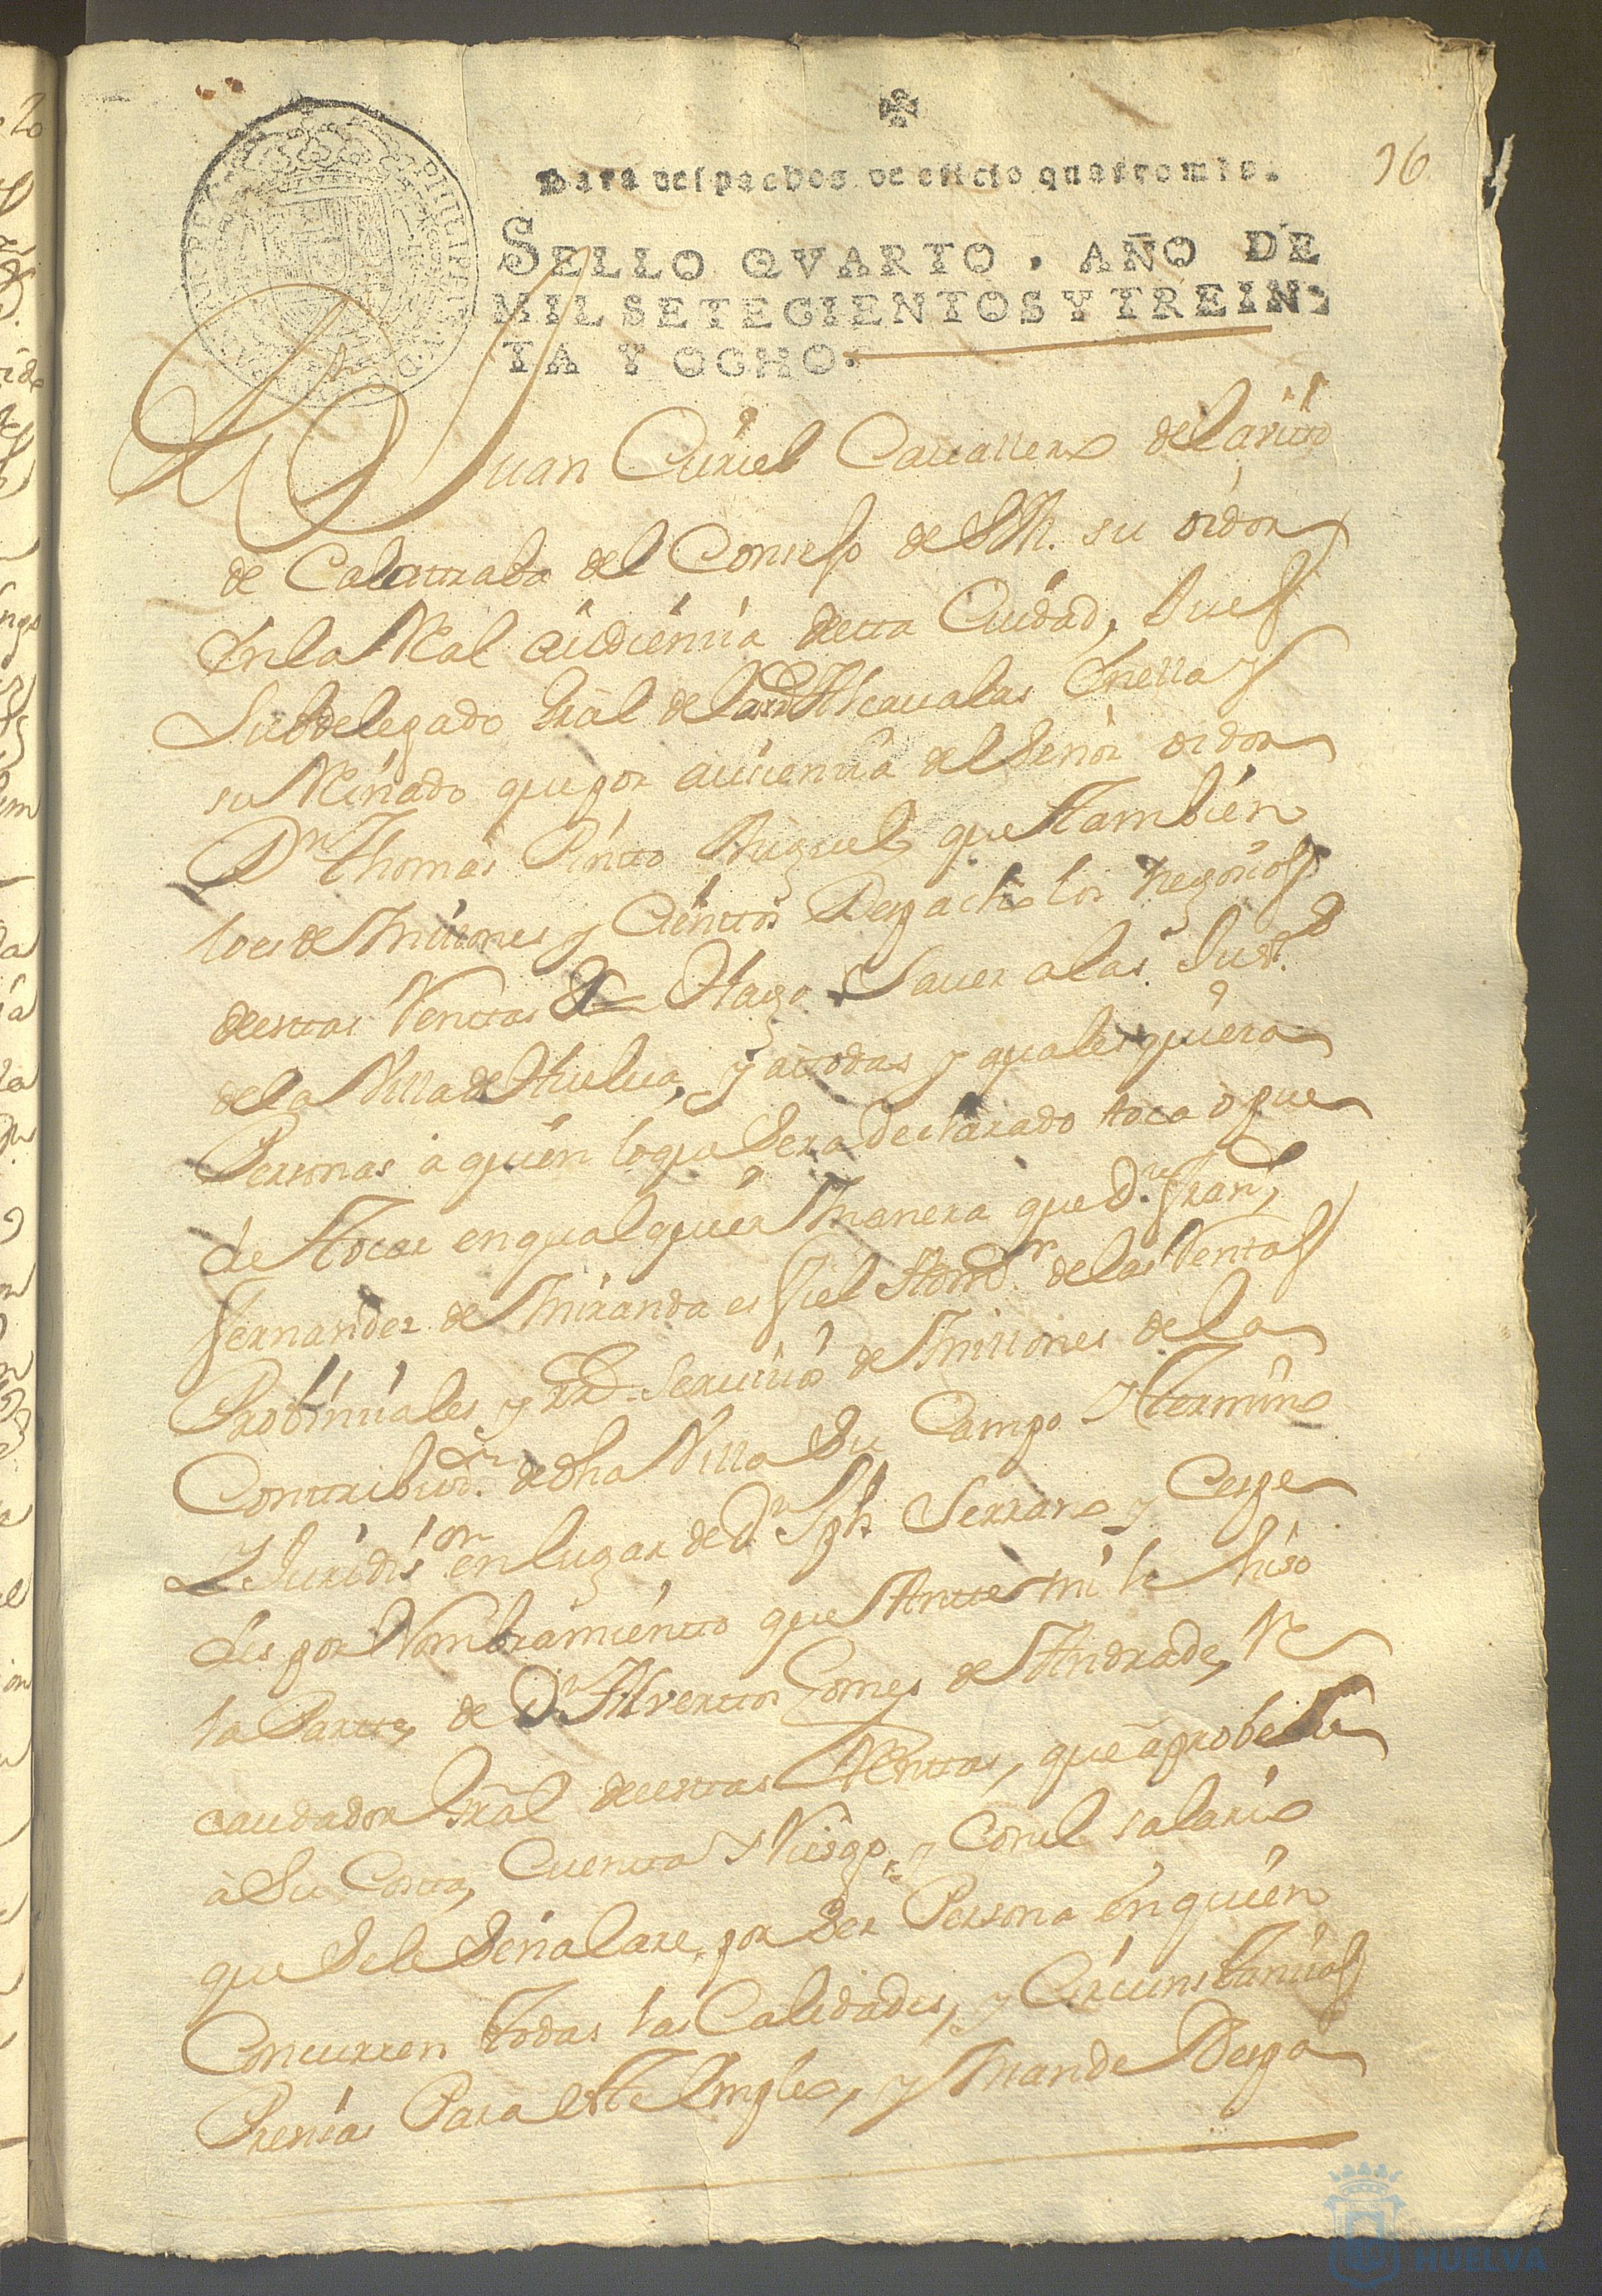 16
Para despachos de oficio quatro mrs.
SELLO QVARTO, AÑO DE
MIL SETECIENTOS Y TREIN-
TA Y OCHO.
Dn Juan Curiel Cauallero del a
de Calatraua del Consejo de S M. su oidor
En la Real audienzia detta Ciudad, Juez
Subdelegado Gral de las Rs Alcaualas En ella y
su Reinado que por ausienzia del Señor oidor
Dn Thomas Pintto Miguel, que tambien
lo es de Millones y Cienttos Despacho los negozios
de estas Renttas &a Hago Sauer a las Just.s
de la Villa de Huelua, y a ttodas y qualesquiera
Personas a quien lo que Sera declarado toca o pue
de Tocar en qualquier manera que Dn Fran.co
Fernandez de Miranda es fiel Admor de las Rentas
Probinziales y Rd Seruizio de Millones de la
Contribuon de dha Villa Su Campo Ttermino
Y Jurisdision en lugar de Dn Jph Serrano y Cespe
des por Nombramientto que Antte mi le hiso
la Partte, de Dn Alvertto Gomez de Andrade, Re
caudador Gral de estas Renttas, que aprobe Su
à Su Costta, Cuentta y Riesgo, y Con el salario
que Se le Señalare, por Ser Persona en quien
Concurren todas las Calidades, y Circunstanzias
Presias Para este Empleo, y Mande Despa
HUELVA